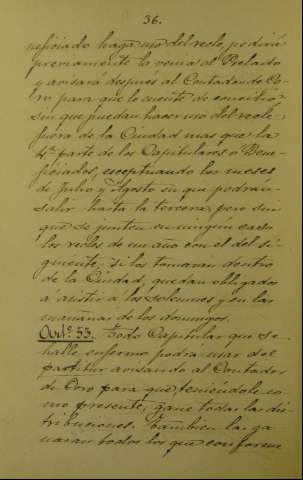 36.
neficiado haga uso del recle, pedirá
previamente la venia al Prelado
y avisará después al Contador de Co-
ro para que le cuente de
sin que puedan hacer uso del recle
fuera de la Ciudad mas que la
4ª parte de los Capitulares o Bene-
ficiados, exceptuando los meses
de Julio y Agosto en que podrán
salir hasta la tercera, pero sin
que se junten en ningún caso
los recles de un año con el del si-
guiente; si los tomaran dentro
de la Ciudad, quedan obligados
a asistir a los solemnes y en las
mañanas de los domingos.
Artº. 53. Todo Capitular que se
halle enfermo podrá usar del
patitur avisando al Contador
de Coro para que, teniéndole co-
mo presente, gane todas las dis-
tribuciones. Tambien las ga-
narán todos los que conforme